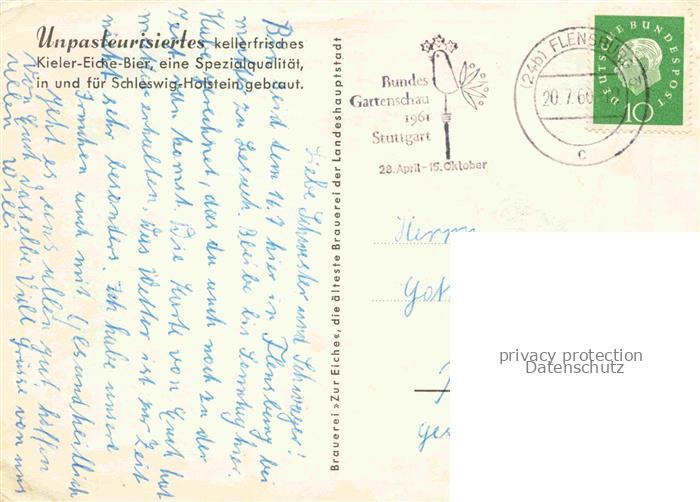 Unpasteurisiertes kellerfrisches
Kieler-Eiche-Bier, eine Spezialqualität,
in und für Schleswig-Holstein gebraut.
Liebe Schwester und Schwager!
Bin seit dem 16.7 hier in Flensburg bei
zu Besuch. Bleibe bis Sonntag hier.
das du auch noch zu der
kommst. Die Karte von Euch hat
erhalten. Das Wetter ist zur Zeit
nicht sehr besonders. Ich habe unsere
und mit Gesundheitlich
geht es uns allen gut, hoffen
von Euch dasselbe. Viele Grüße von uns
allen Willi
Brauerei »Zur Eiche«, die älteste Brauerei der Landeshauptstadt
Bundes
Gartenschau
1961
Stuttgart
28. April-15. Oktober
(24b) FLENSBURG
20.7.60
c
DEUTSCHE BUNDESPOST
10
Herrn
privacy protection
Datenschutz